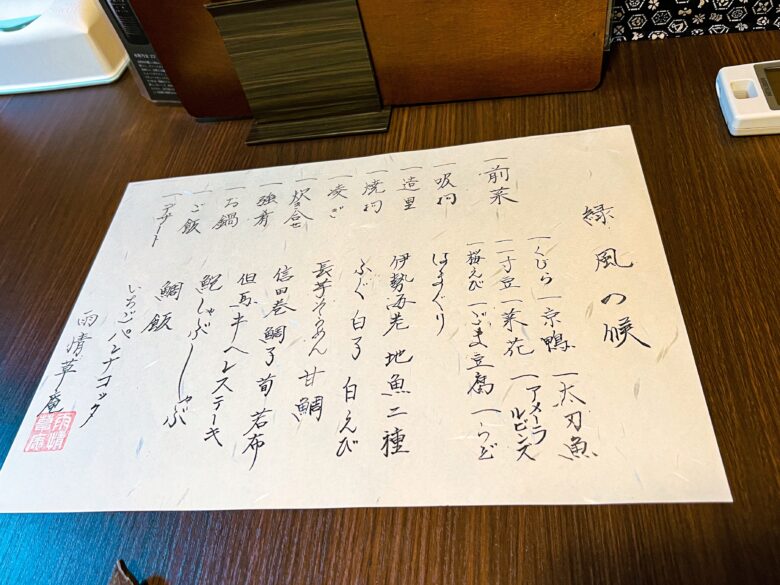 緑風の候
一前菜
一くじら 一京鴨 一太刀魚
一一寸豆 一菜花 一アメーラルビンズ
一桜えび 一ごま豆腐 一うど
一吸物 はまぐり
一造里 伊勢海老 地魚二種
一焼物 ふぐ白子 白えび
一凌ぎ 長芋そうめん 甘鯛
一炊き合せ 信田巻 鯛子 筍 若布
一強肴 但馬牛ヘレステーキ
一お鍋 鮑しゃぶしゃぶ
一ご飯 鯛飯
一デザート いちごパンナコッタ
雨情草庵
雨情草庵